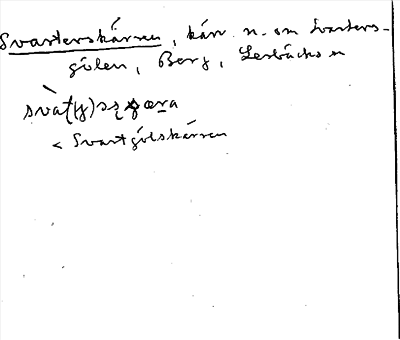 Svarterskärren, kärr n. om Svarters-
gölen, Berg, Lesbäcks
svàʈ(y)əʂ
< Svartgölskärren